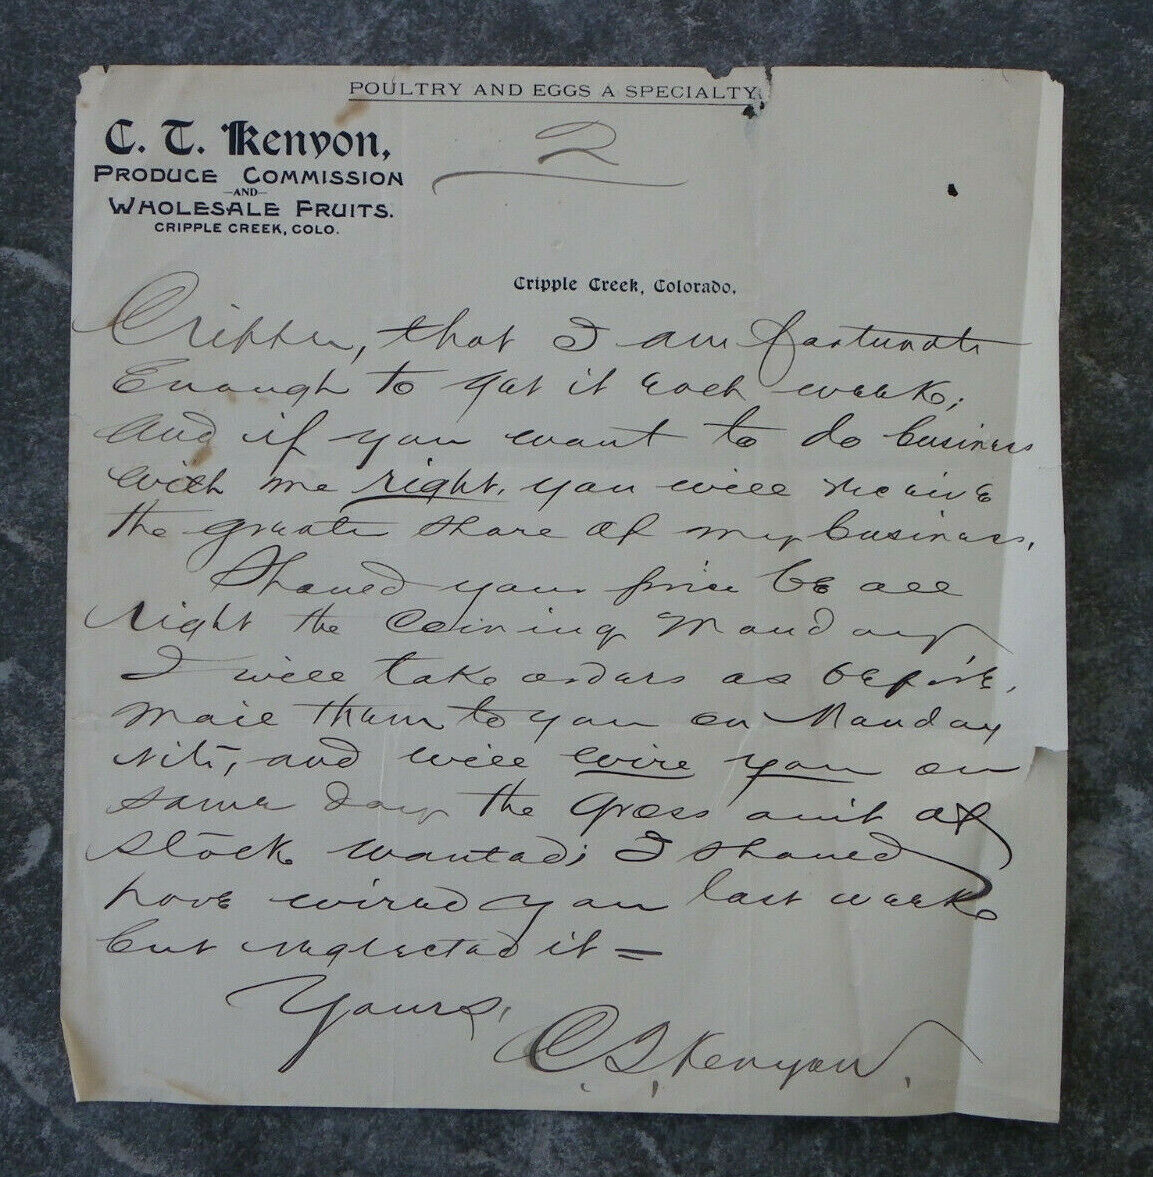 POULTRY AND EGGS A SPECIALTY.
C. T. Kenyon,
PRODUCE COMMISSION
—AND—
WHOLESALE FRUITS.
CRIPPLE CREEK, COLO.
2
Cripple Creek, Colorado,
that I am fortunate
Enough to get it each week;
and if you want to do business
with me right, you will receive
the greater share of my business.
Should your price be all
right the coming Monday
I will take orders as before,
mail them to you on Monday
nite, and will wire you on
same day the gross am't of
stock wanted; I should
have wired you last week
but neglected it =
Yours,
C. T. Kenyon.